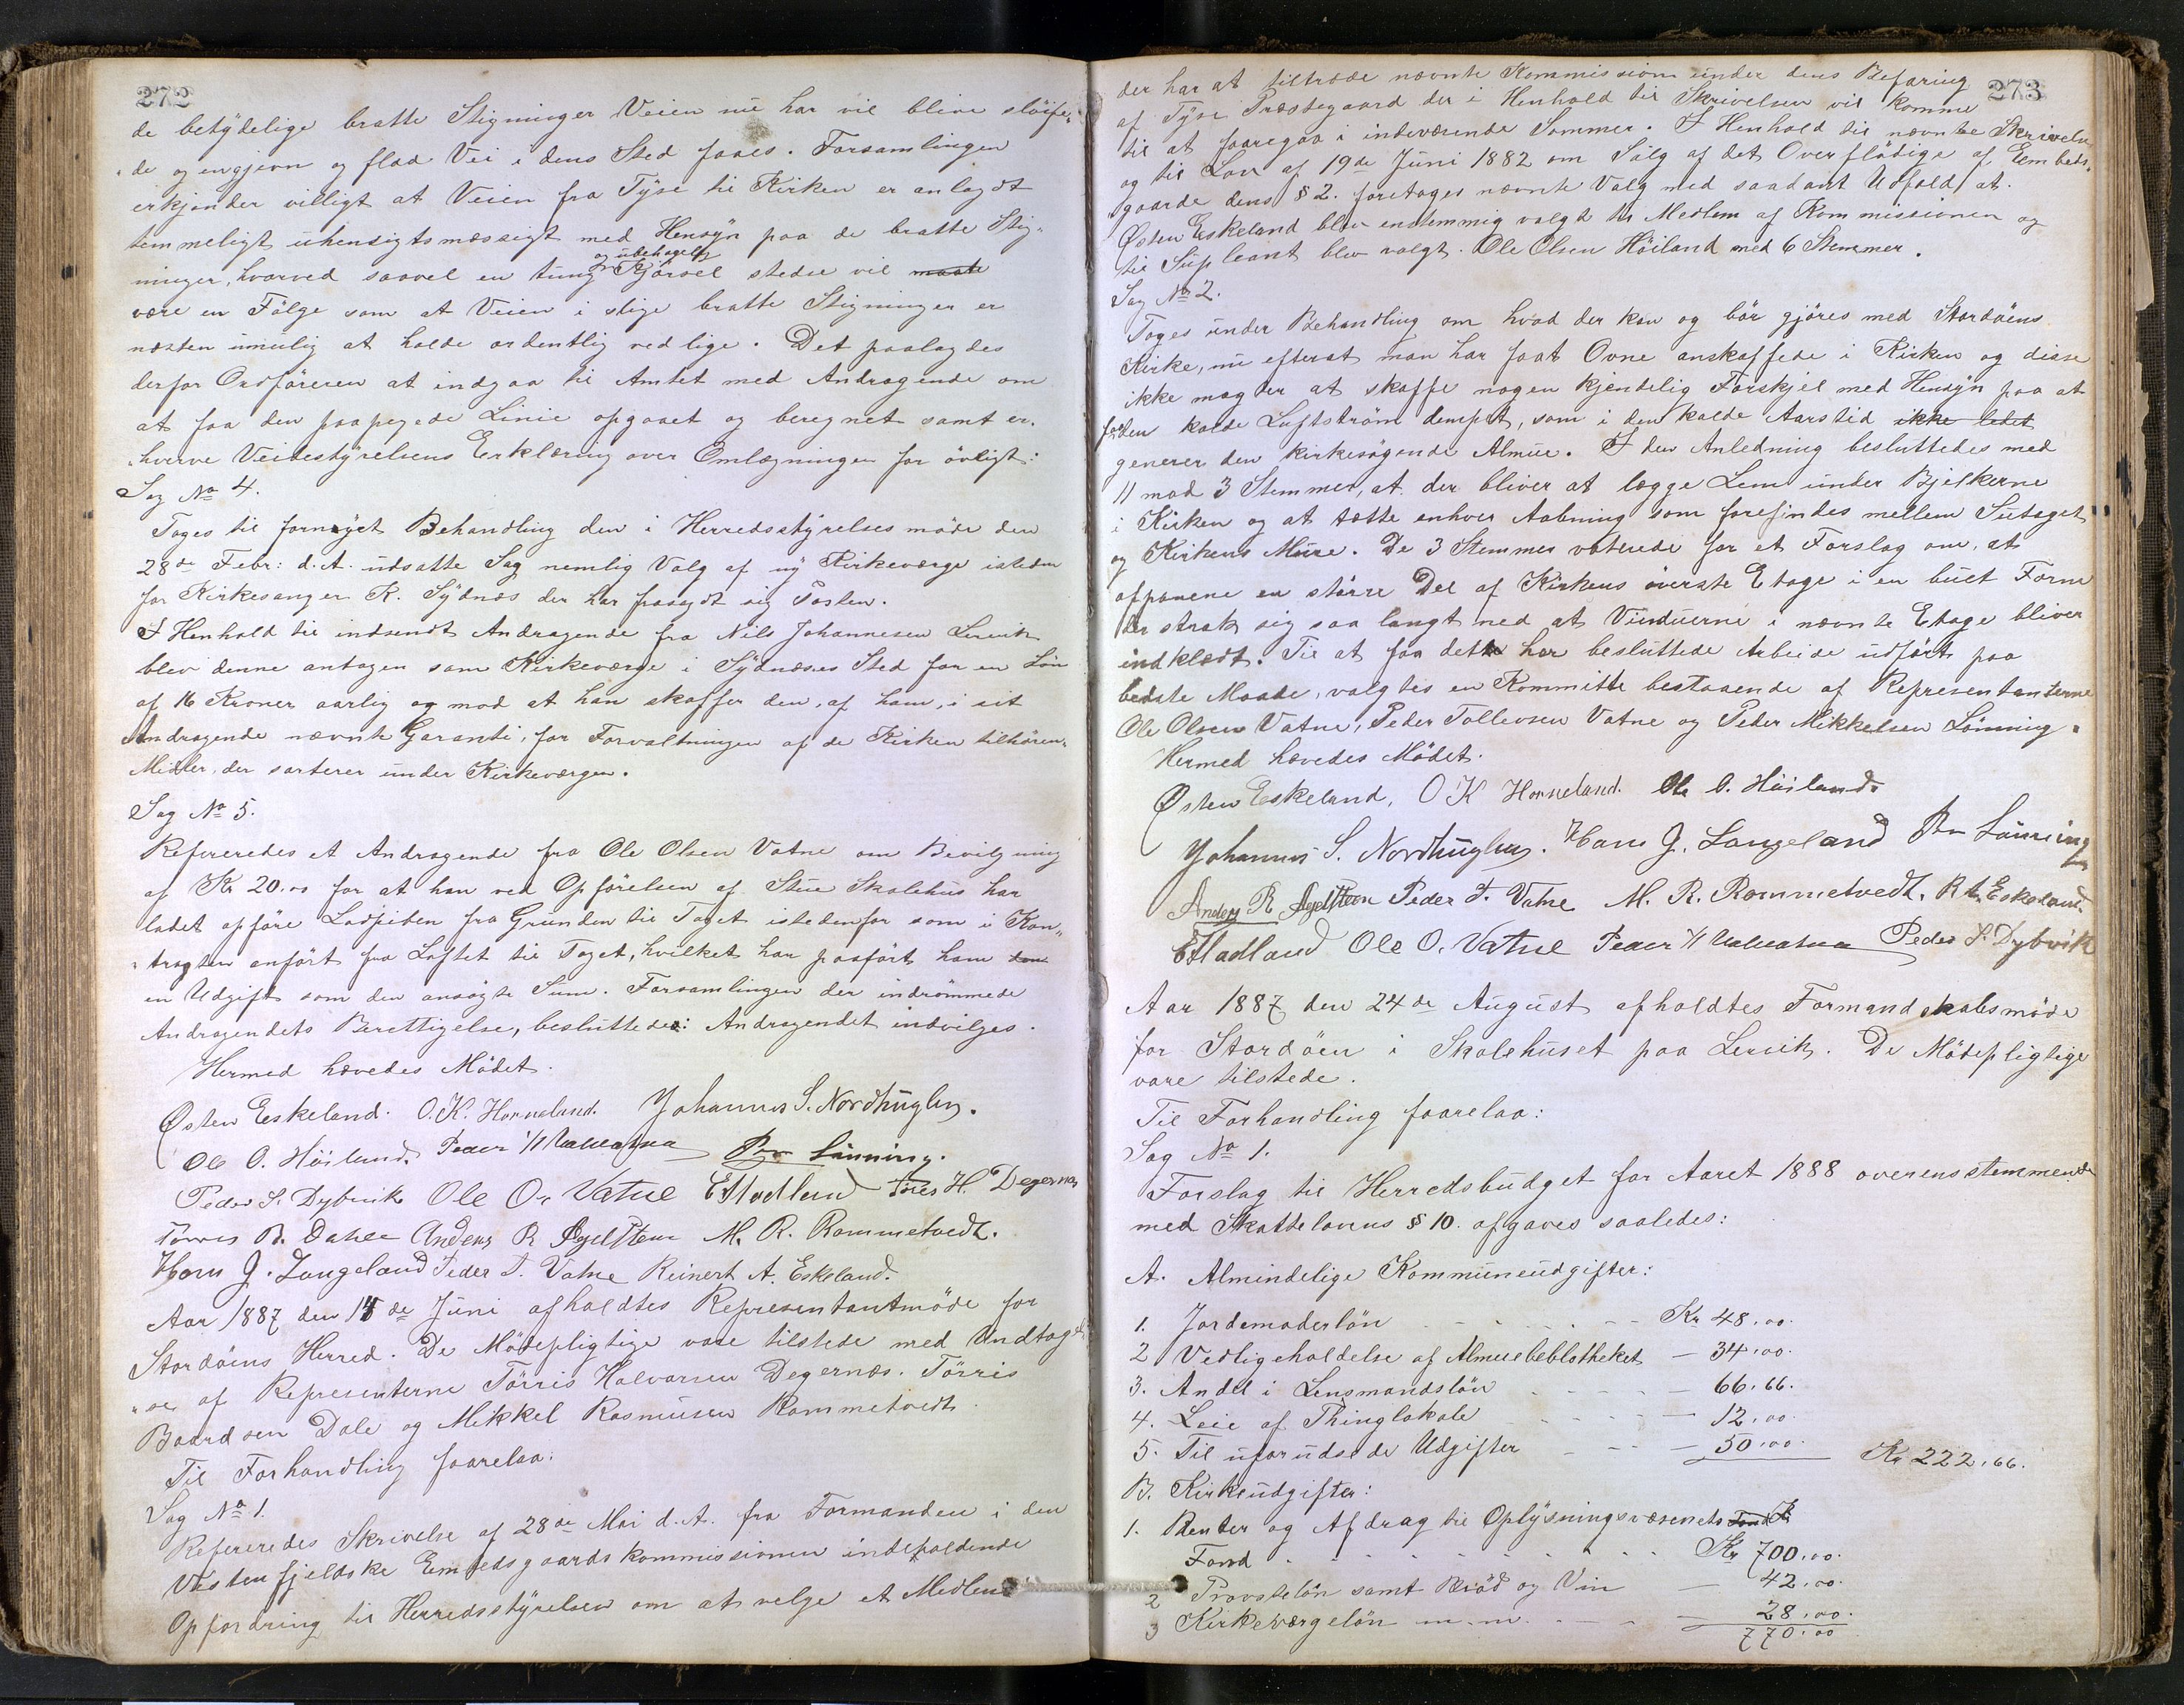 272
de betydelige bratte Stigninger Veien nu har vil blive sløife-
de og en jevn og flad Vei i dens Sted faaes. Forsamlingen
erkjender villigt at Veien fra Tyse til Kirken er anlagdt
temmeligt uhensigtsmæssigt med Hensyn paa de bratte Stig-
og ubehagelig
ninger, hvorved saavel en tung Kjørsel stedse vil maate
være en Følge som at Veien i slige bratte Stigninger er
næsten umulig at holde ordentlig vedlige. Det paalagdes
derfor Ordføreren at indgaa til Amtet med Andragende om
at faa den paapegede Linie opgaaet og beregnet samt er-
hverve Veibestyrelsens Erklæring over Omlægningen for øvrigt:
Sag No 4.
Toges til fornyet Behandling den i Herredsstyrelsesmøde den
28de Febr: d.A. udsatte Sag nemlig Valg af ny Kirkeværge isteden
for Kirkesanger K. Sydnæs der har frasagdt sig Posten.
I Henhold til indsendt Andragende fra Nils Johannesen Lervik
blev denne antagen som Kirkeværge i Sydnæses Sted for en Løn
af 16 Kroner aarlig og mod at han skaffer den, af ham, i sit
Andragende nævnte Garanti, for Forvaltningen af de Kirken tilhøren-
Midler, der sorterer under Kirkeværgen.
Sag No 5.
Refereredes et Andragende fra Ole Olsen Vatne om Bevilgning
af Kr 20.00 for at han ved Opførelsen af Stue Skolehus har
ladet opføre Ladpiben fra Grunden til Taget istedenfor som i Kon-
tragten anført fra Loftet til Taget, hvilket har paaført ham den
en Udgift som den ansøgte Sum. Forsamlingen der indrømmede
Andragendets Berettigelse, besluttedes: Andragendet indvilges.
Hermed hævedes Mødet.
Østen Eskeland. O.K. Horneland. Johannes S. Nordhuglen.
Ole O. Höiland. Peder M Lönning.
Peder S. Dybvik Ole O. Vatne E Hadland Tøres H. Degernes
Tørres B. Dahle Anders R Agdesteen M. R. Rommetvedt.
Hans J. Langeland Peder T. Vatne Reinert A. Eskeland.
Aar 1887 den 14de Juni afholdtes Representantmøde for
Stordøens Herred. De Mødepligtige vare tilstede med Undtag-
se af Representerne Tørris Halvorsen Degernæs. Tørris
Baardsen Dale og Mikkel Rasmusen Rommetvedt.
Til Forhandling foorelaa:
Sag No 1.
Refereredes Skrivelse af 28de Mai d.A. fra Formanden i den
Vestenfjeldske Embedsgaardskommissionen indeholdende
Opfordring til Herredsstyrelsen om at velge et Medlem
273
der har at tiltræde nævnte Kommission under dens Befaring
af Tyse Præstegaard der i Henhold til Skrivelsen vil komme
til at foregaa i indeværende Sommer. I Henhold til nævnte Skrivelse
og til Lov af 19de Juni 1882 om Salg af det Overflødige af Embeds-
gaarde dens § 2. foretages nævnte Valg med saadant Udfald at
Østen Eskeland blev enstemmig valgt til Medlem af Kommissionen og
til Supleant blev valgt Ole Olsen Höiland med 6 Stemmer.
Sag No 2.
Toges under Behandling om hvad der kan og bør gjøres med Stordøens
Kirke, nu efterat man har faat Ovne anskaffede i Kirken og disse
ikke magter at skaffe nogen kjendelig Forskjel med Hensyn paa at
faa den kolde Luftstrøm dempet, som i den kolde Aarstid ikke lidet
generer den kirkesøgende Almue. I den Anledning besluttedes med
11 mod 3 Stemmer, at der bliver at lægge Lem under Bjelkerne
i Kirken og at tætte enhver Aabning som forefindes mellem Sutaget
og Kirkens Mure. De 3 Stemmer voterede for et Forslag om, at
oppanene en større Del af Kirkens øverste Etage i en buet Form
der strak sig saa langt ned at Vinduerne i nævnte Etage bliver
indklædt. Til at faa dette her besluttede Arbeide udført paa
bedste Maade, valgtes en Kommitte bestaaende af Representanterne
Ole Olsen Vatne, Peder Tollevsen Vatne og Peder Mikkelsen Lønning.
Hermed hævedes Mødet.
Østen Eskeland, O K Horneland. Ole O. Höiland.
Johannes S. Nordhuglen. Hans J. Langeland Lönning
Anders R Agdesteen Peder T. Vatne M. R. Rommetvedt. R. A. Eskeland.
E Hadland Ole O. Vatne Peder Peder S. Dybvik
Aar 1887 den 24de August afholdtes Formandskabsmøde
for Stordøen i Skolehuset paa Lervik. De Mødepligtige
vare tilstede.
Til Forhandling foorelaa:
Sag No 1.
Forslag til Herredsbudget for Aaret 1888 overensstemmende
med Skattelovens § 10. afgaves saaledes:
A. Almindelige Kommuneudgifter:
1. Jordemoderløn - - - - - Kr 48.00.
2 Vedligeholdelse af Almuebeblotheket — 34.00.
3. Andel i Lensmandsløn - - - — 66.66.
4. Leie af Thinglokale - - - — 12.00.
5. Til uforudsede Udgifter - - - — 50.00. Kr 222.66.
B. Kirkeudgifter:
1. Renter og Afdrag til Oplysningsvæsenets Fond
Fond - - - - - - Kr 700.00.
2 Provsteløn samt Brød og Vin — 42.00.
3 Kirkeværgeløn m.m. - - - — 28.00.
770.00